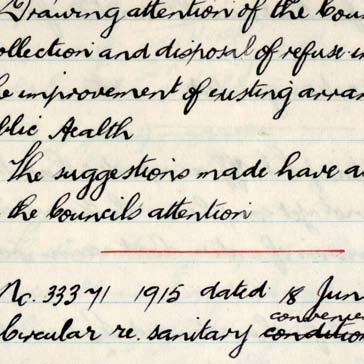 Drawing attention of the Coun
ollection and disposal of refuse in
e improvement of existing arran
blic Health
The suggestions made have a
the Council's attention
No. 33371 1915 dated 18 Jun
convenie
Circular re. sanitary conditio